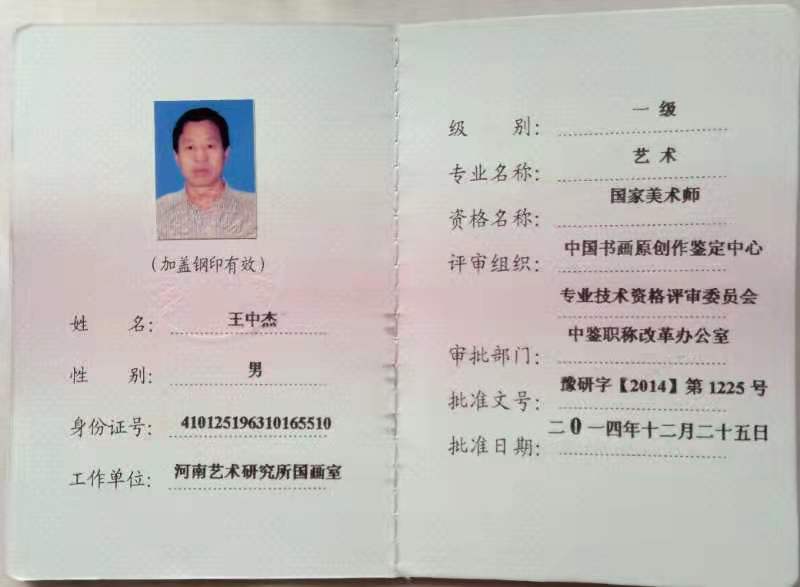 (加盖钢印有效)
姓 名: 王中杰
性 别: 男
身份证号: 410125196310165510
工作单位: 河南艺术研究所国画室
级 别: 一 级
专业名称: 艺 术
资格名称: 国家美术师
评审组织: 中国书画原创作鉴定中心
专业技术资格评审委员会
审批部门: 中鉴职称改革办公室
批准文号: 豫研字【2014】第 1225 号
批准日期: 二0一四年十二月二十五日